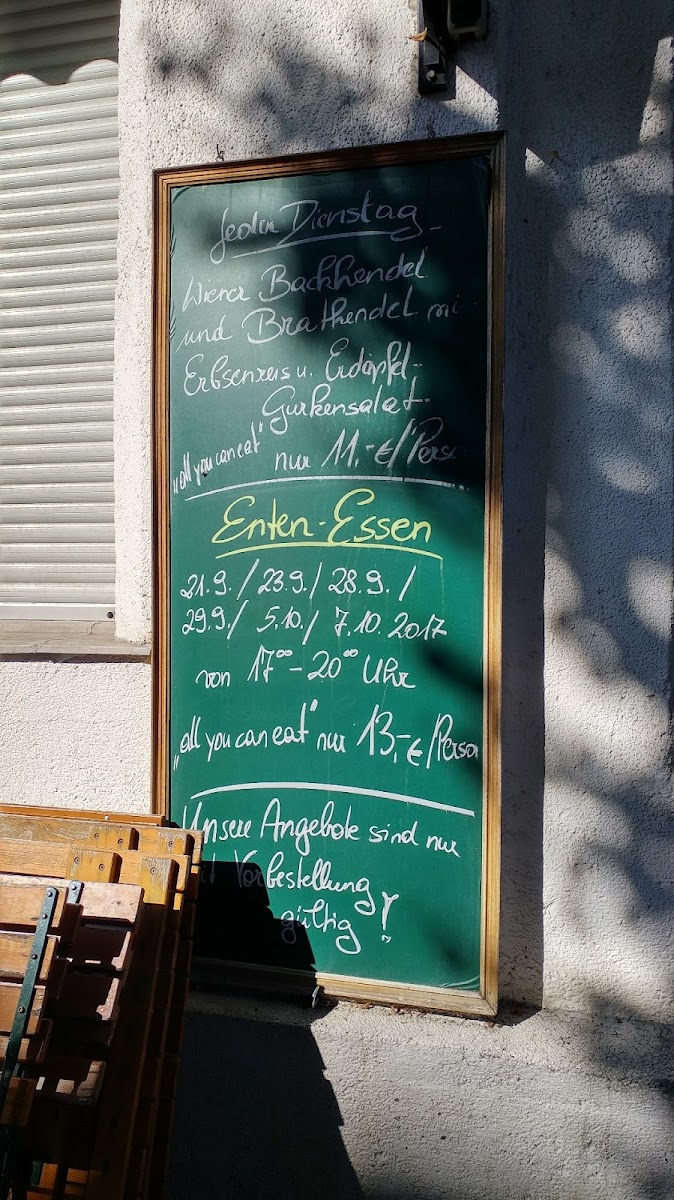 Jeden Dienstag
Wiener Backhendel
und Brathendel mi
Erbsenreis u. Erdäpfel-
Gurkensalat
„all you can eat" nur 11,-€/Perso
Enten-Essen
21.9./23.9./28.9./
29.9./5.10./7.10.2017
von 17⁰⁰-20⁰⁰ Uhr
„all you can eat" nur 13,-€/Person
Unsere Angebote sind nur
Vorbestellung
gültig!